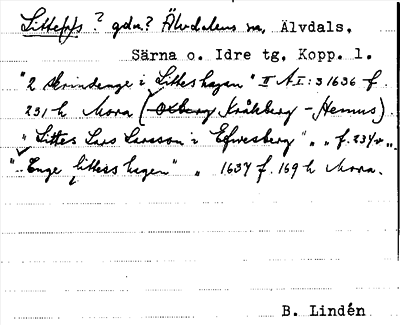 Litte(s) ? gdn? Älvdalens sn, Älvdals,
Särna o. Idre tg, Kopp. l.
"2 skrindenge i Littes hagen" II A I: 3 1636 f.
231 h Mora (Oxberg, Kråkberg - Hemus).
" Littes Lars Larsson i Efwesberg" " " f. 234v "
"Enge Littess hagen" " 1637 f. 169 h Mora.
B. Lindén